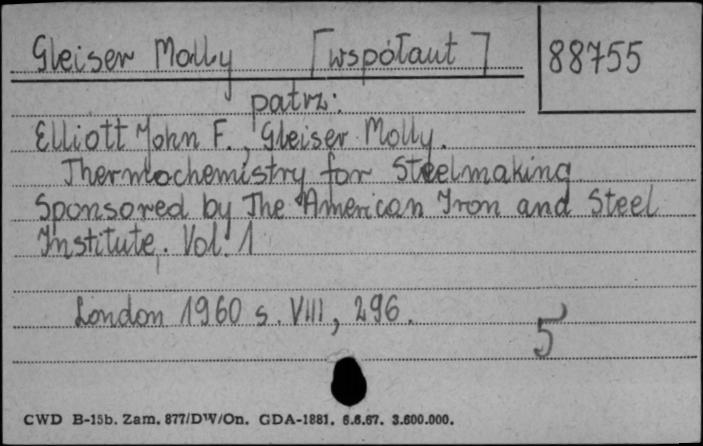 Gleiser Molly [współaut] 88755
patrz:
Elliott John F., Gleiser Molly.
Thermochemistry for Steelmaking
Sponsored by The American Iron and Steel
Institute. Vol. 1
London 1960 s. VIII, 296.
5
CWD B-15b. Zam. 877/DW/On. GDA-1881. 6.6.67. 3.600.000.